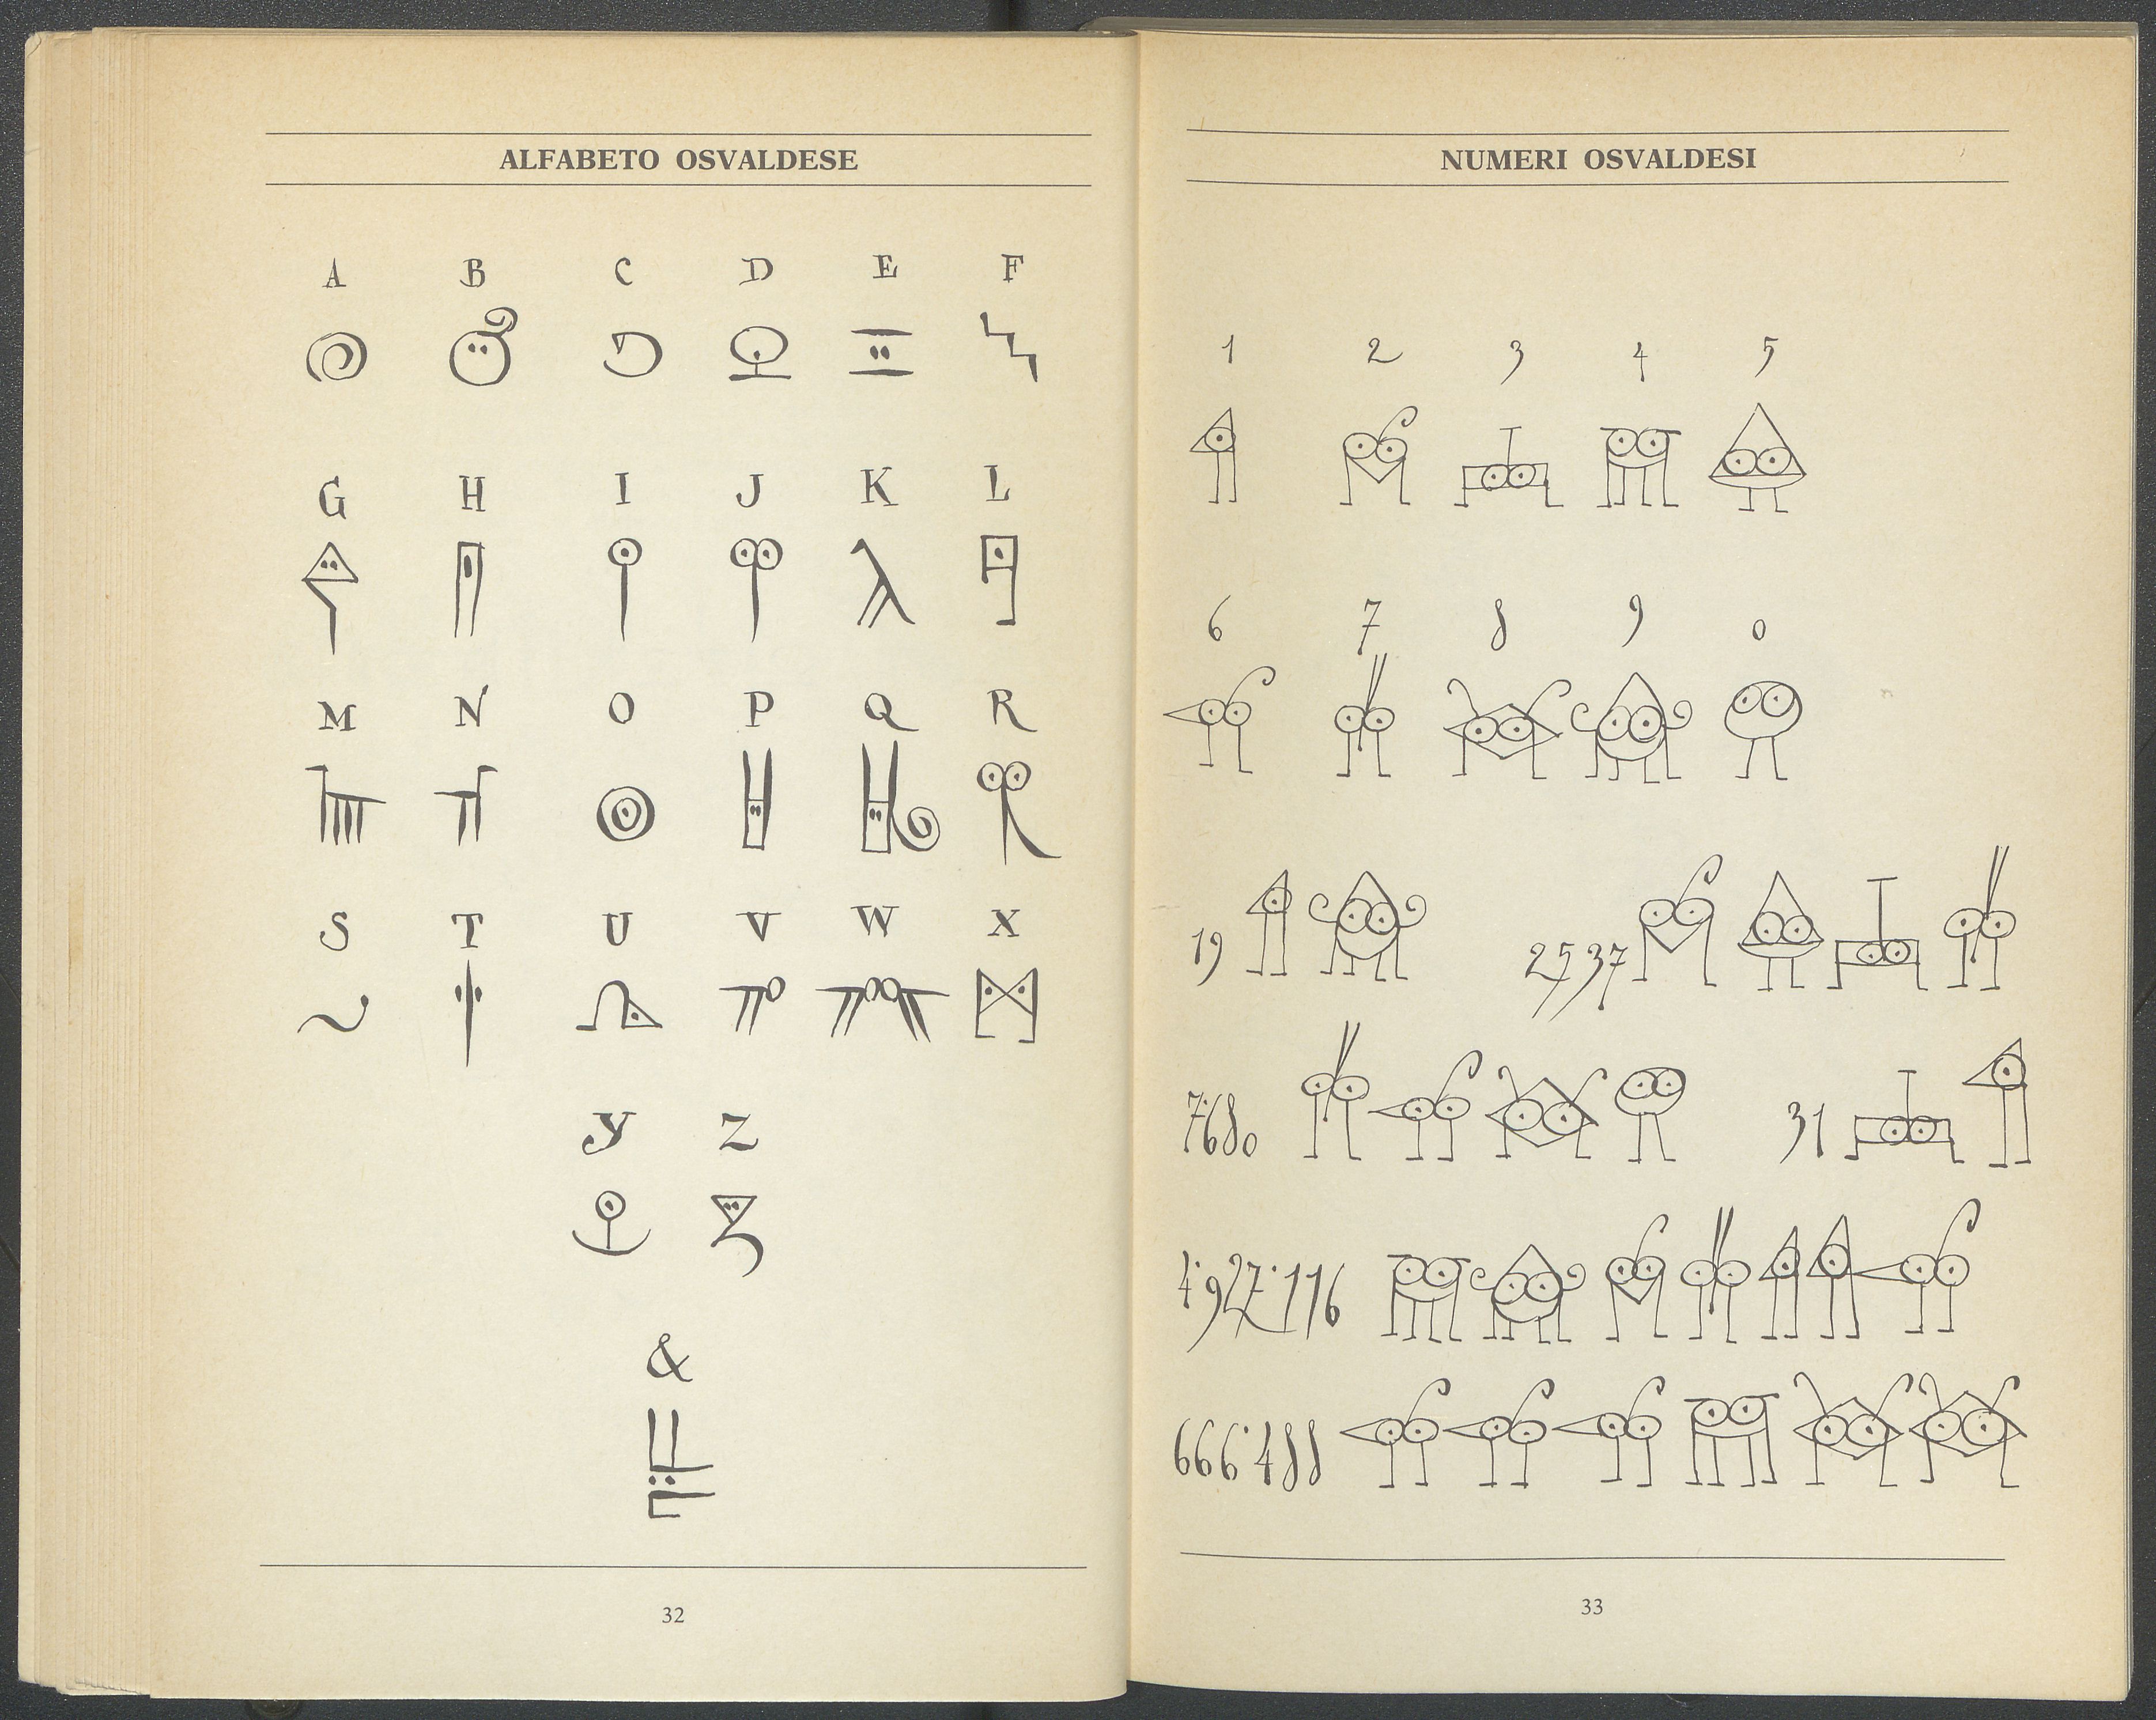 ALFABETO OSVALDESE
A B C D E F
G H I J K L
M N O P Q R
S T U V W X
Y Z
&
32
NUMERI OSVALDESI
1 2 3 4 5
6 7 8 9 0
19 2537
7·680 31
4·927·116
666·488
33